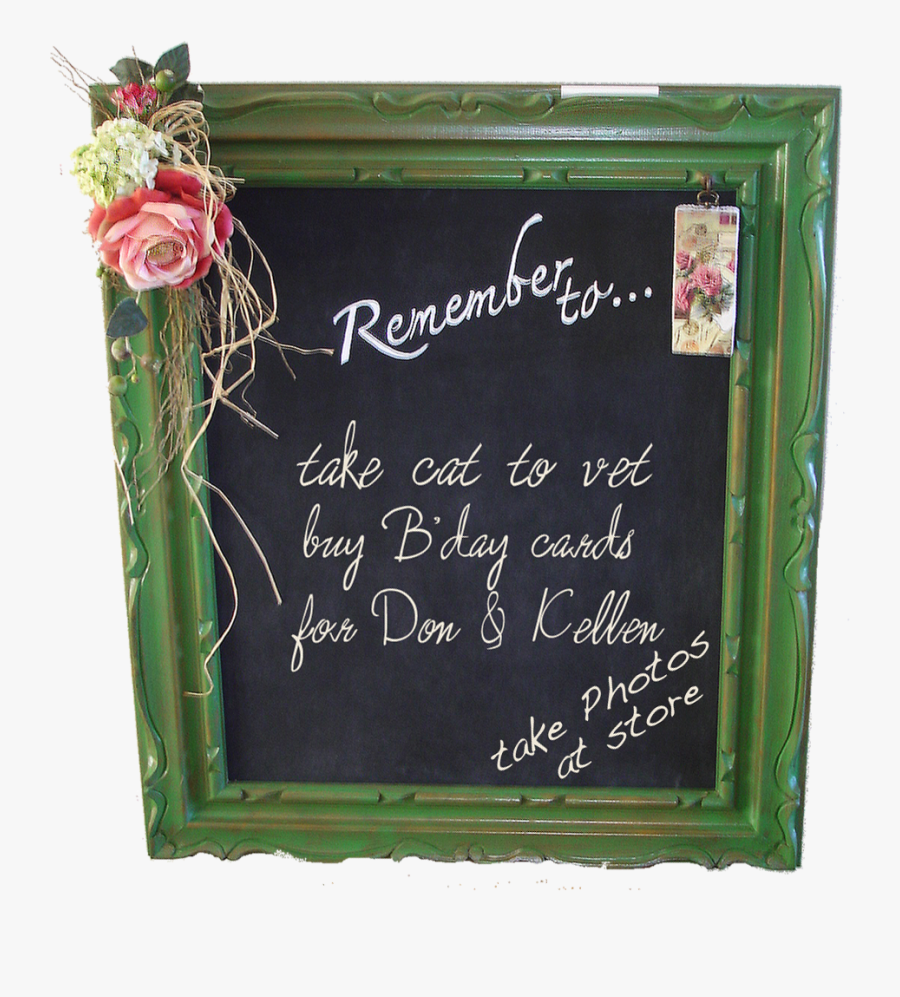 Remember to...
take cat to vet
buy B'day cards
for Don & Kellen
take Photos
at store